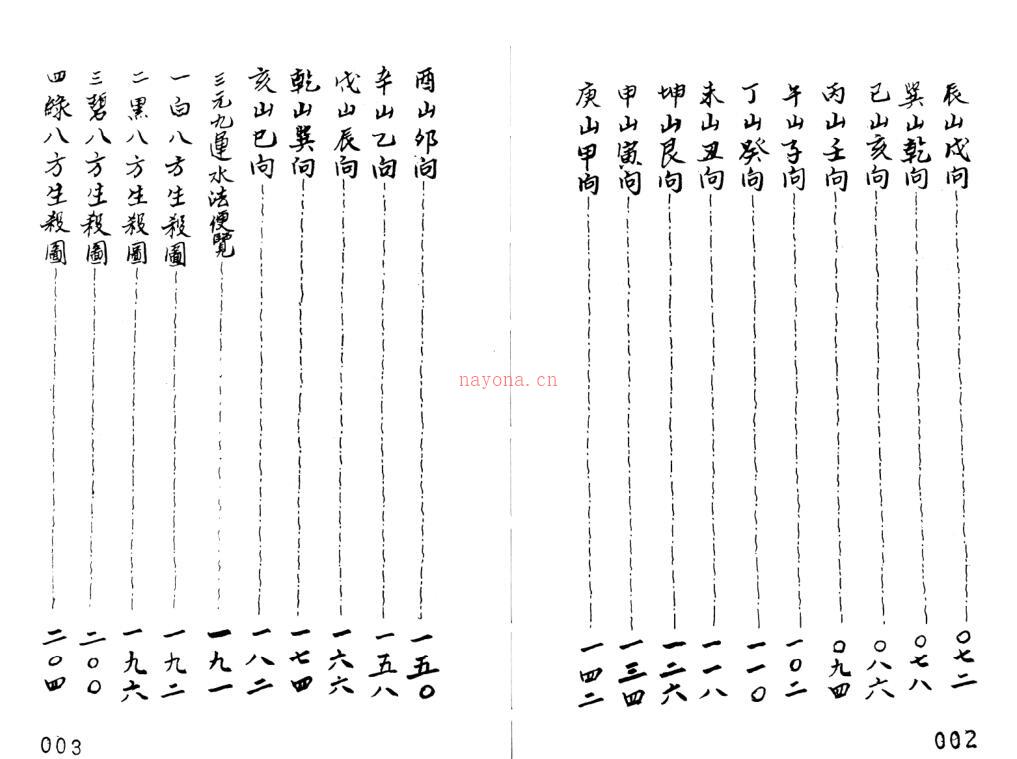 辰山戌向 〇七二
巽山乾向 〇七八
巳山亥向 〇八六
丙山壬向 〇九四
午山子向 一〇二
丁山癸向 一一〇
未山丑向 一一八
坤山艮向 一二六
申山寅向 一三四
庚山甲向 一四二
002
酉山卯向 一五〇
辛山乙向 一五八
戌山辰向 一六六
乾山巽向 一七四
亥山巳向 一八二
三元九運水法便覽 一九一
一白八方生殺圖 一九二
二黑八方生殺圖 一九六
三碧八方生殺圖 二〇〇
四綠八方生殺圖 二〇四
003
nayona.cn